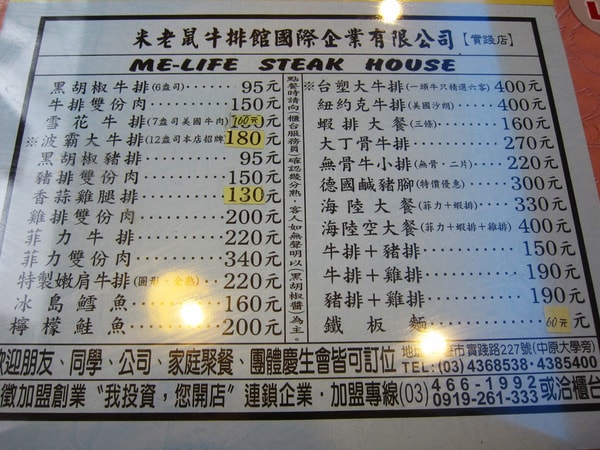 米老鼠牛排館國際企業有限公司【實踐店】
ME-LIFE STEAK HOUSE
黑胡椒牛排(6盎司)‧‧‧‧‧95元
牛排雙份肉‧‧‧‧‧150元
雪花牛排(7盎司美國牛肉)160元
※波霸大牛排(12盎司本店招牌)180元
黑胡椒豬排‧‧‧‧‧95元
豬排雙份肉‧‧‧‧‧150元
香蒜雞腿排‧‧‧‧‧130元
雞排雙份肉‧‧‧‧‧200元
菲力牛排‧‧‧‧‧220元
菲力雙份肉‧‧‧‧‧340元
特製嫩肩牛排(圓形‧全熟)‧220元
冰島鱈魚‧‧‧‧‧160元
檸檬鮭魚‧‧‧‧‧200元
點餐時請向櫃台服務員確認幾分熟,客人如無聲明以(黑胡椒醬)為主。
※台塑大牛排(一頭牛只精選六客)400元
紐約克牛排(美國沙朗)‧‧‧400元
蝦排大餐(三條)‧‧‧‧‧160元
大丁骨牛排‧‧‧‧‧270元
無骨牛小排(無骨‧二片)‧‧‧220元
德國鹹豬腳(特價優惠)‧‧‧300元
海陸大餐(菲力+蝦排)‧‧‧330元
海陸空大餐(菲力+蝦排+雞排)400元
牛排+豬排‧‧‧‧‧150元
牛排+雞排‧‧‧‧‧190元
豬排+雞排‧‧‧‧‧190元
鐵板麵‧‧‧‧‧60元
歡迎朋友、同學、公司、家庭聚餐、團體慶生會皆可訂位
市實踐路227號(中原大學旁)
TEL:(03)4368538‧4385400
徵加盟創業“我投資,您開店”連鎖企業‧加盟專線(03)466-1992 0919-261-333或洽櫃台